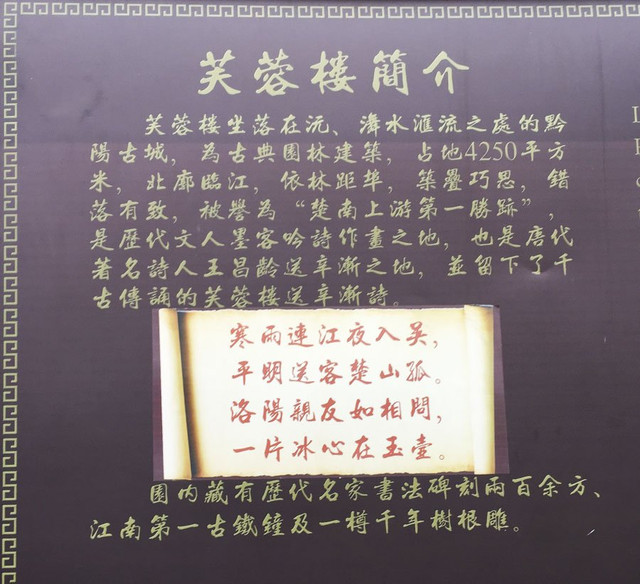 芙蓉樓簡介
芙蓉樓坐落在沅、潕水滙流之處的黔
陽古城，為古典園林建築，占地4250平方
米，北廓臨江，依林距埠，築疊巧思，錯
落有致，被譽為“楚南上游第一勝跡”，
是歷代文人墨客吟詩作畫之地，也是唐代
著名詩人王昌齡送辛漸之地，並留下了千
古傳誦的芙蓉樓送辛漸詩。
寒雨連江夜入吴，
平明送客楚山孤。
洛陽親友如相問，
一片冰心在玉壺。
園内藏有歷代名家書法碑刻兩百余方、
江南第一古鐵鐘及一樽千年樹根雕。